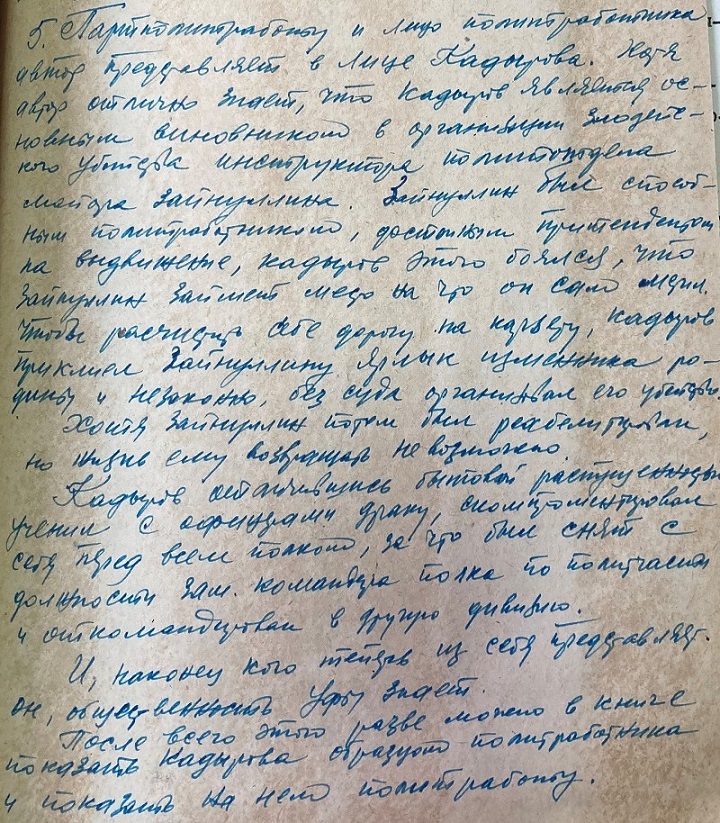 5. Партполитработу и лицо политработника
автор представляет в лице Кадырова. Хотя
автор отлично знает, что Кадыров является ос-
новным виновником в организации злодейс-
кого убийства инструктора политотдела
майора Зайнуллина. Зайнуллин был способ-
ным политработником, достойным притендентом
на выдвижение, Кадыров этого боялся, что
Зайнуллин займет место на что он сам метил.
Чтобы расчистить себе дорогу на карьеру, Кадыров
приклеил Зайнуллину ярлык изменника ро-
дины и незаконно, без суда организовал его убийство.
Хотя Зайнуллин потом был реабелитирован,
но жизнь ему возвращать невозможно.
Кадыров отличившись бытовой распущенностью
учинил с офицерами драку, скомпроментировал
себя перед всем полком, за что был снят с
должности зам. командира полка по политчасти
и откомандирован в другую дивизию.
И, наконец кого теперь из себя представляет
он, общественность Уфы знает.
После всего этого разве можно в книге
показать Кадырова образцом политработника
и показать на нем политработу.